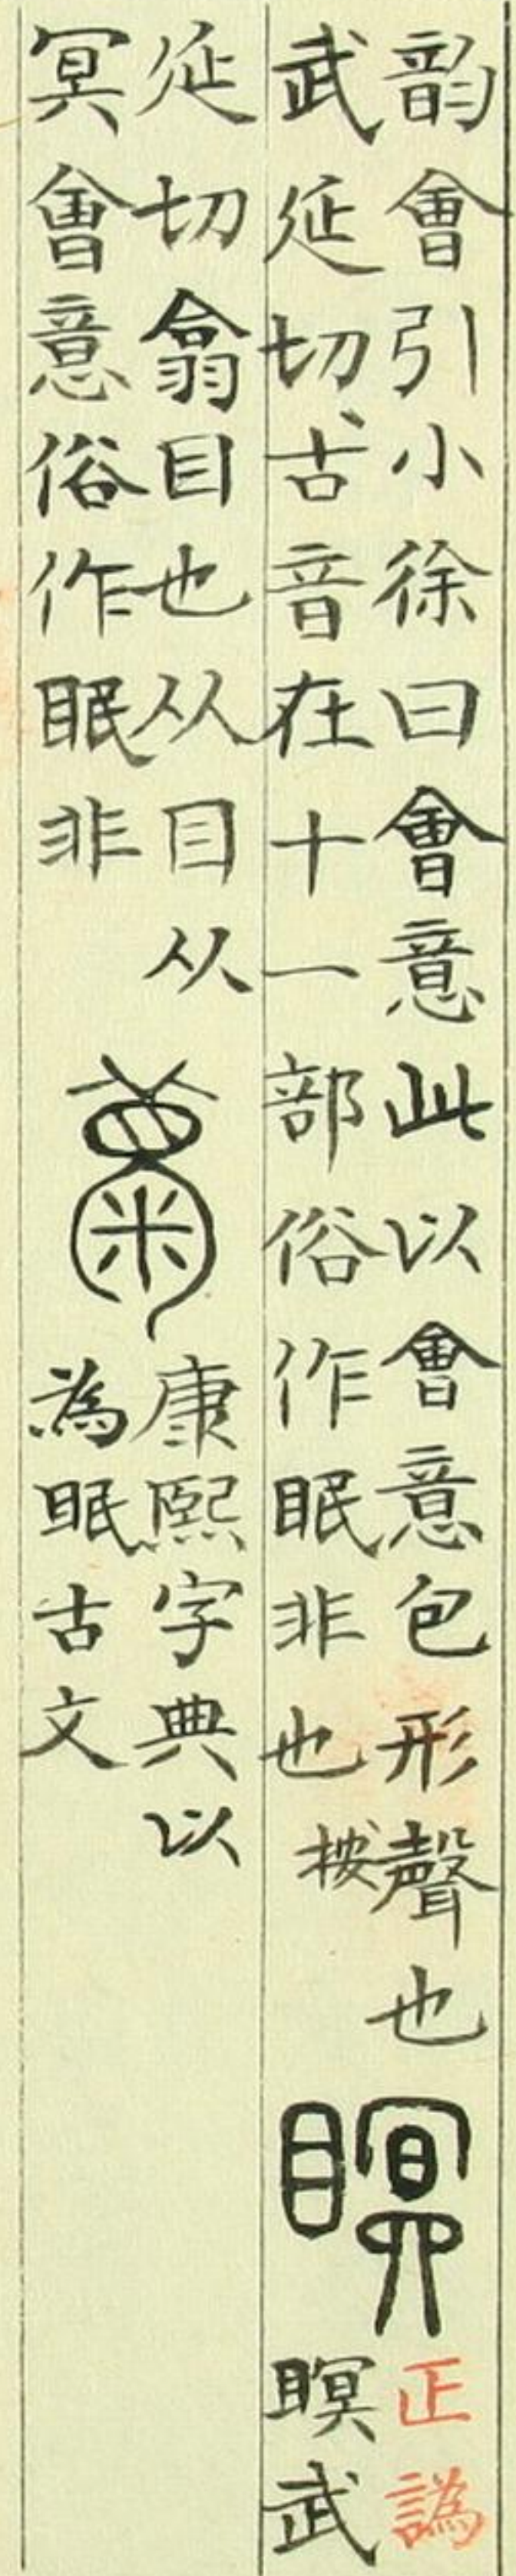 韵會引小徐曰會意此以會意包形聲也
武延切古音在十一部俗作眠非也按
瞑
正譌
瞑武
延切翕目也从目从
冥會意俗作眠非
康熙字典以
為眠古文